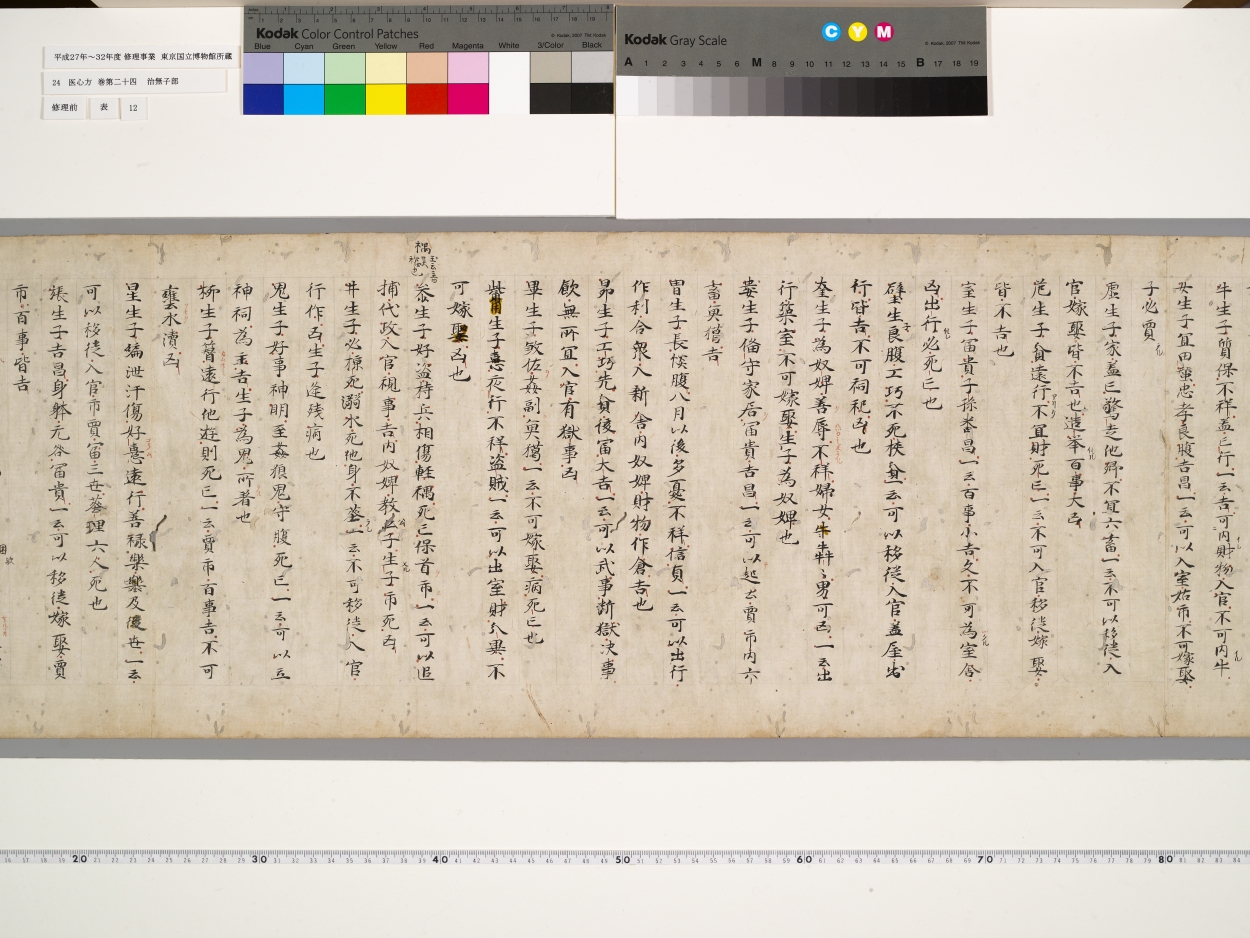 平成27年～32年度 修理事業 東京国立博物館所蔵
24 医心方 巻第二十四 治無子部
修理前 表 12
Kodak Color Control Patches
Blue Cyan Green Yellow Red Magenta White 3/Color Black
Kodak Gray Scale
C Y M
A 1 2 3 4 5 6 M 8 9 10 11 12 13 14 15 B 17 18 19
牛生子質保不祥盖三行一云吉可内財物入官不可内牛
女生子宜田蚕忠孝良腹吉昌一云可以入室姑市不可嫁娶
子必賈
虚生子家盖亡驚走他郷不宜六畜一云不可以移徙入
官嫁娶皆不吉也造挙百事大凶
危生子貧遠行不宜財死亡一云不可入官移徙嫁娶
皆不吉也
室生子冨貴子孫番昌一云百事小吉久不可為室舎
凶出行必死亡也
壁生子良腹工巧不死狭貧一云可以移徙入官盖屋出
行皆吉不可祠祀凶也
奎生子為奴婢善辱不祥婦女朱牽男可凶一云出
行築室不可嫁娶生子為奴婢也
婁生子備守家居冨貴吉昌一云可以起土賈市内六
畜奠償吉
胃生子長模腹八月以後多憂不祥信貞一云可以出行
作利合衆入新舎内奴婢財物作倉吉也
昴生子工巧先貧後冨大吉一云可以武事断獄决事
飲無所宜入官有獄事凶
畢生子敏佐姦副一云不可嫁娶病死亡也
觜生子憙夜行不祥盗賊一云可以出室財分異不
可嫁娶凶也
参生子好盗持兵相傷軽禍死亡保首市一云可以追
捕代政入官視事吉内奴婢教子生子市死凶
井生子必掠死溺水死他身不葬一云不可移徙入官
行作凶生子逢残病也
鬼生子好事神明至姦狼鬼守腹死亡一云可以立
神祠為主吉生子為鬼所著也
柳生子晋遠行他遊則死亡一云賈市百事吉不可
壅水涜凶
星生子嬌泄汗傷好憙遠行善禄樂及優世一云
可以移徙入官市賈冨三世葬埋六人死也
張生子吉昌身躰元咎冨貴一云可以移徙嫁娶賈
市百事皆吉